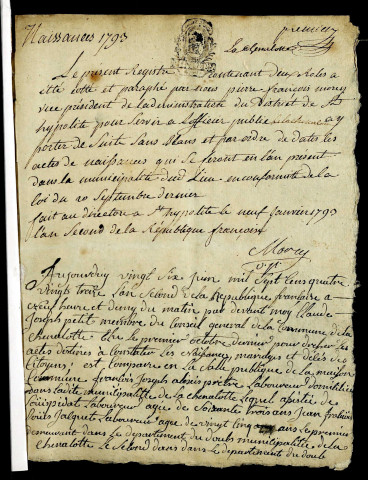 Naissances 1793
premier
La chenalotte
Le present Registre contenant deux Roles a
eté cotté et paraphé par nous pierre françois mourey
vice président de ladministration du District de St
hypolite pour servir a lofficier public a y
porter de suite sans blanc et par ordre de dates les
actes de naissances qui se feront en lan present
dans la municipalité dud Lieu en conformité de la
loi du 20 Septembre dernier
fait au directoire a St hypolite le neuf Janvier 1793
lan Second de la République françoise
Mourey
Aujourdhuy vingt Six juin mil Sept Cens quatre
vingts treize lan Second de la République francaise a
heure et demy du matin par devant moy Claude
Joseph petit membre du Conseil general de la Commune de la
Chenalotte elu le premier octobre dernier pour dresser les
actes destinés a Constater les Naissances mariages et décès des
Citoyens; est Comparu en la Salle publique de la maison
Commune francois Joseph alexis pretre Laboureur domicilié
dans ladite municipalité de la chenalotte Lequel assisté de
Laboureur age de Soixante trois ans Jean
Louis Jacquet Laboureur age de vingt cinq ans le premier
demeurant dans le departement du doubs municipalité de la
Chenalotte le Second dans le departement du doubs